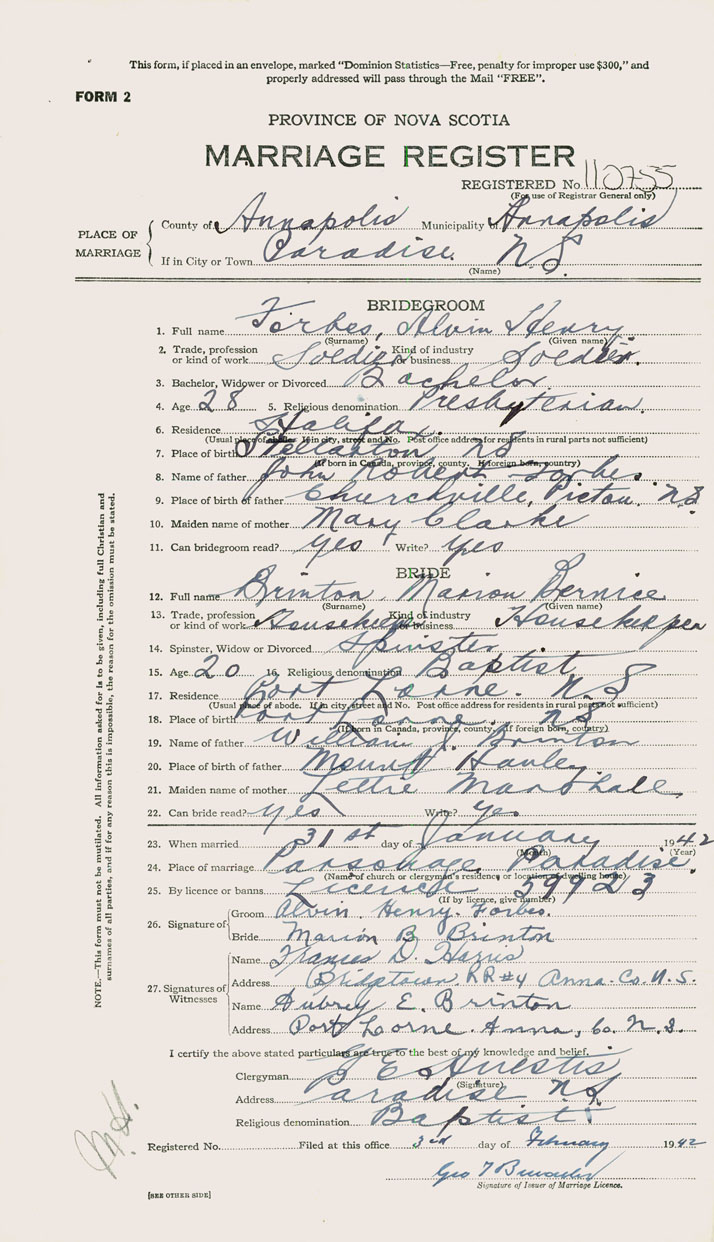 This form, if placed in an envelope, marked “Dominion Statistics—Free, penalty for improper use $300,” and
properly addressed will pass through the Mail “FREE”.
FORM 2
PROVINCE OF NOVA SCOTIA
MARRIAGE REGISTER
REGISTERED No. 110755
(For use of Registrar General only)
PLACE OF MARRIAGE
County of Annapolis Municipality of Annapolis
If in City or Town Paradise. N.S.
(Name)
BRIDEGROOM
1. Full name Forbes, Alvin Henry
(Surname) (Given name)
2. Trade, profession or kind of work Soldier Kind of industry or business Soldier.
3. Bachelor, Widower or Divorced Bachelor
4. Age 28 5. Religious denomination Presbyterian.
6. Residence Halifax
(Usual place of abode. If in city, street and No. Post office address for residents in rural parts not sufficient)
7. Place of birth Stellarton NS
(If born in Canada, province, county. If foreign born, country)
8. Name of father John Robert Forbes.
9. Place of birth of father Churchville, Pictou. NS
10. Maiden name of mother Mary Clarke
11. Can bridegroom read? yes Write? yes
BRIDE
12. Full name Brinton, Marion Bernice
(Surname) (Given name)
13. Trade, profession or kind of work Housekeeper Kind of industry or business Housekeeper
14. Spinster, Widow or Divorced Spinster
15. Age 20 16. Religious denomination Baptist
17. Residence Port Lorne. N.S
(Usual place of abode. If in city, street and No. Post office address for residents in rural parts not sufficient)
18. Place of birth Port Lorne. NS
(If born in Canada, province, county. If foreign born, country)
19. Name of father William Brinton
20. Place of birth of father Mount Hanley
21. Maiden name of mother Lettie Marshall
22. Can bride read? yes Write? yes
23. When married 31st day of January 1942
(Month) (Year)
24. Place of marriage Parsonage, Paradise.
(Name of church or clergyman's residence or location of dwelling house)
25. By licence or banns Licence 59923
(If by licence, give number)
26. Signature of
Groom Alvin Henry Forbes.
Bride Marion B Brinton
27. Signatures of Witnesses
Name Frances D.
Address Bridgetown. RR#4 Anna. Co. N.S.
Name Aubrey E. Brinton
Address Port Lorne. Anna, Co. N.S.
I certify the above stated particulars are true to the best of my knowledge and belief.
Clergyman
(Signature)
Address Paradise NS
Religious denomination Baptist
Registered No. Filed at this office 3rd day of February 1942
Geo
Signature of Issuer of Marriage Licence.
[SEE OTHER SIDE]
NOTE.—This form must not be mutilated. All information asked for is to be given, including full Christian and
surnames of all parties, and if for any reason this is impossible, the reason for the omission must be stated.